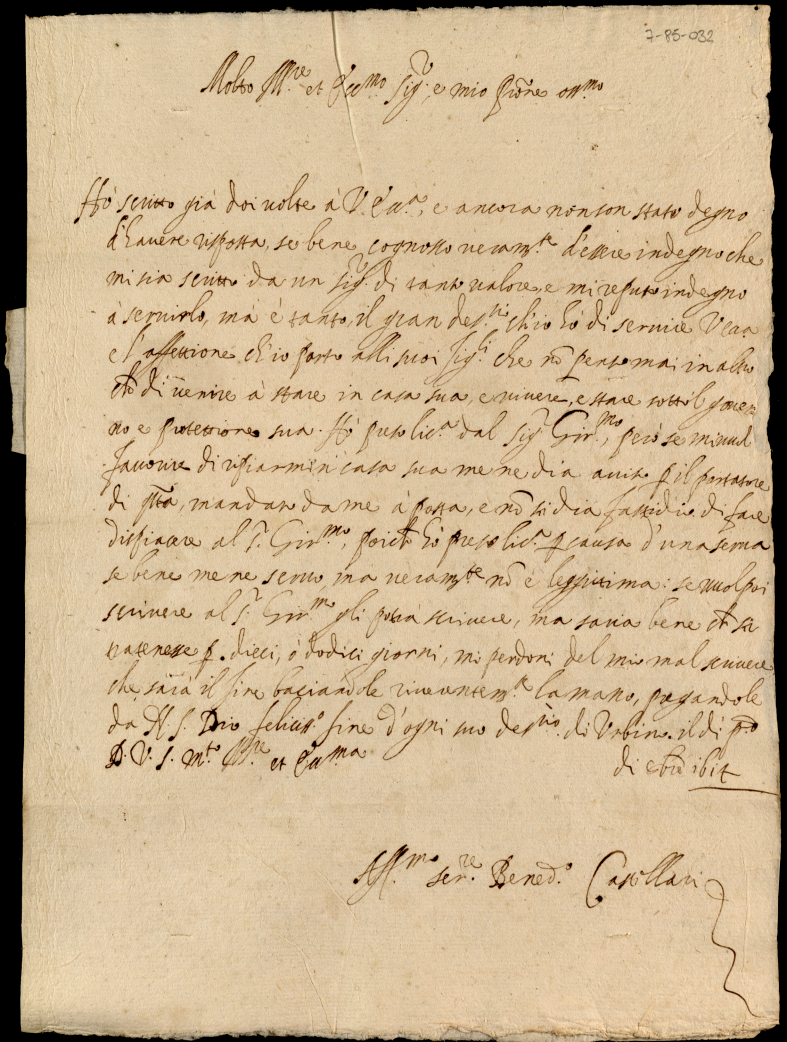 7-85-032
Molto Ill.re et Ecc.mo Sig.r e mio p̃rone oss.mo
Hò scritto già doi uolte à V. Ecc.a, e ancora non son stato degno
d'hauere risposta, se bene cognosco ueram.te d'essere indegno che
mi sia scritto da un Sig.r di tanto ualore, e mi reputo indegno
à seruirlo, mà è tanto, il gran des.rio ch'io hò di seruire V. Ecc.a
e l'affettione ch'io porto alli suoi figli che nõ penso mai in altro
ch̃ di uenire à stare in casa sua, e uiuere, e stare sotto'l gouer
no e protettione sua. Hò preso lic.a dal Sig.r Gir.mo, però se mi uuol
fauorire di ripiarmi in casa sua me ne dia auiso p il portatore
di q̃sta, mandato da me à posta, e nõ si dia fastidio di fare
dispiacere al S.r Gir.mo, poich̃ hò preso lic.a p causa d'una serua
se bene me ne seruo, ma ueram.te nõ è legittima: se uuol poi
scriuere al S.r Gir.mo gli potrà scriuere, ma saria bene ch̃ si
tratenesse p. dieci, ò dodici giorni, mi perdoni del mio mal scriuere
che sarà il fine baciandole riuerentem.te la mano, pregandole
da N. S. Dio feliciss.o fine d'ogni suo des.rio. di Vrbino. il dì p̃o
D. V. S. M.to Ill.re et Ecc.ma
Aff.mo ser.re Bened.o Castellari